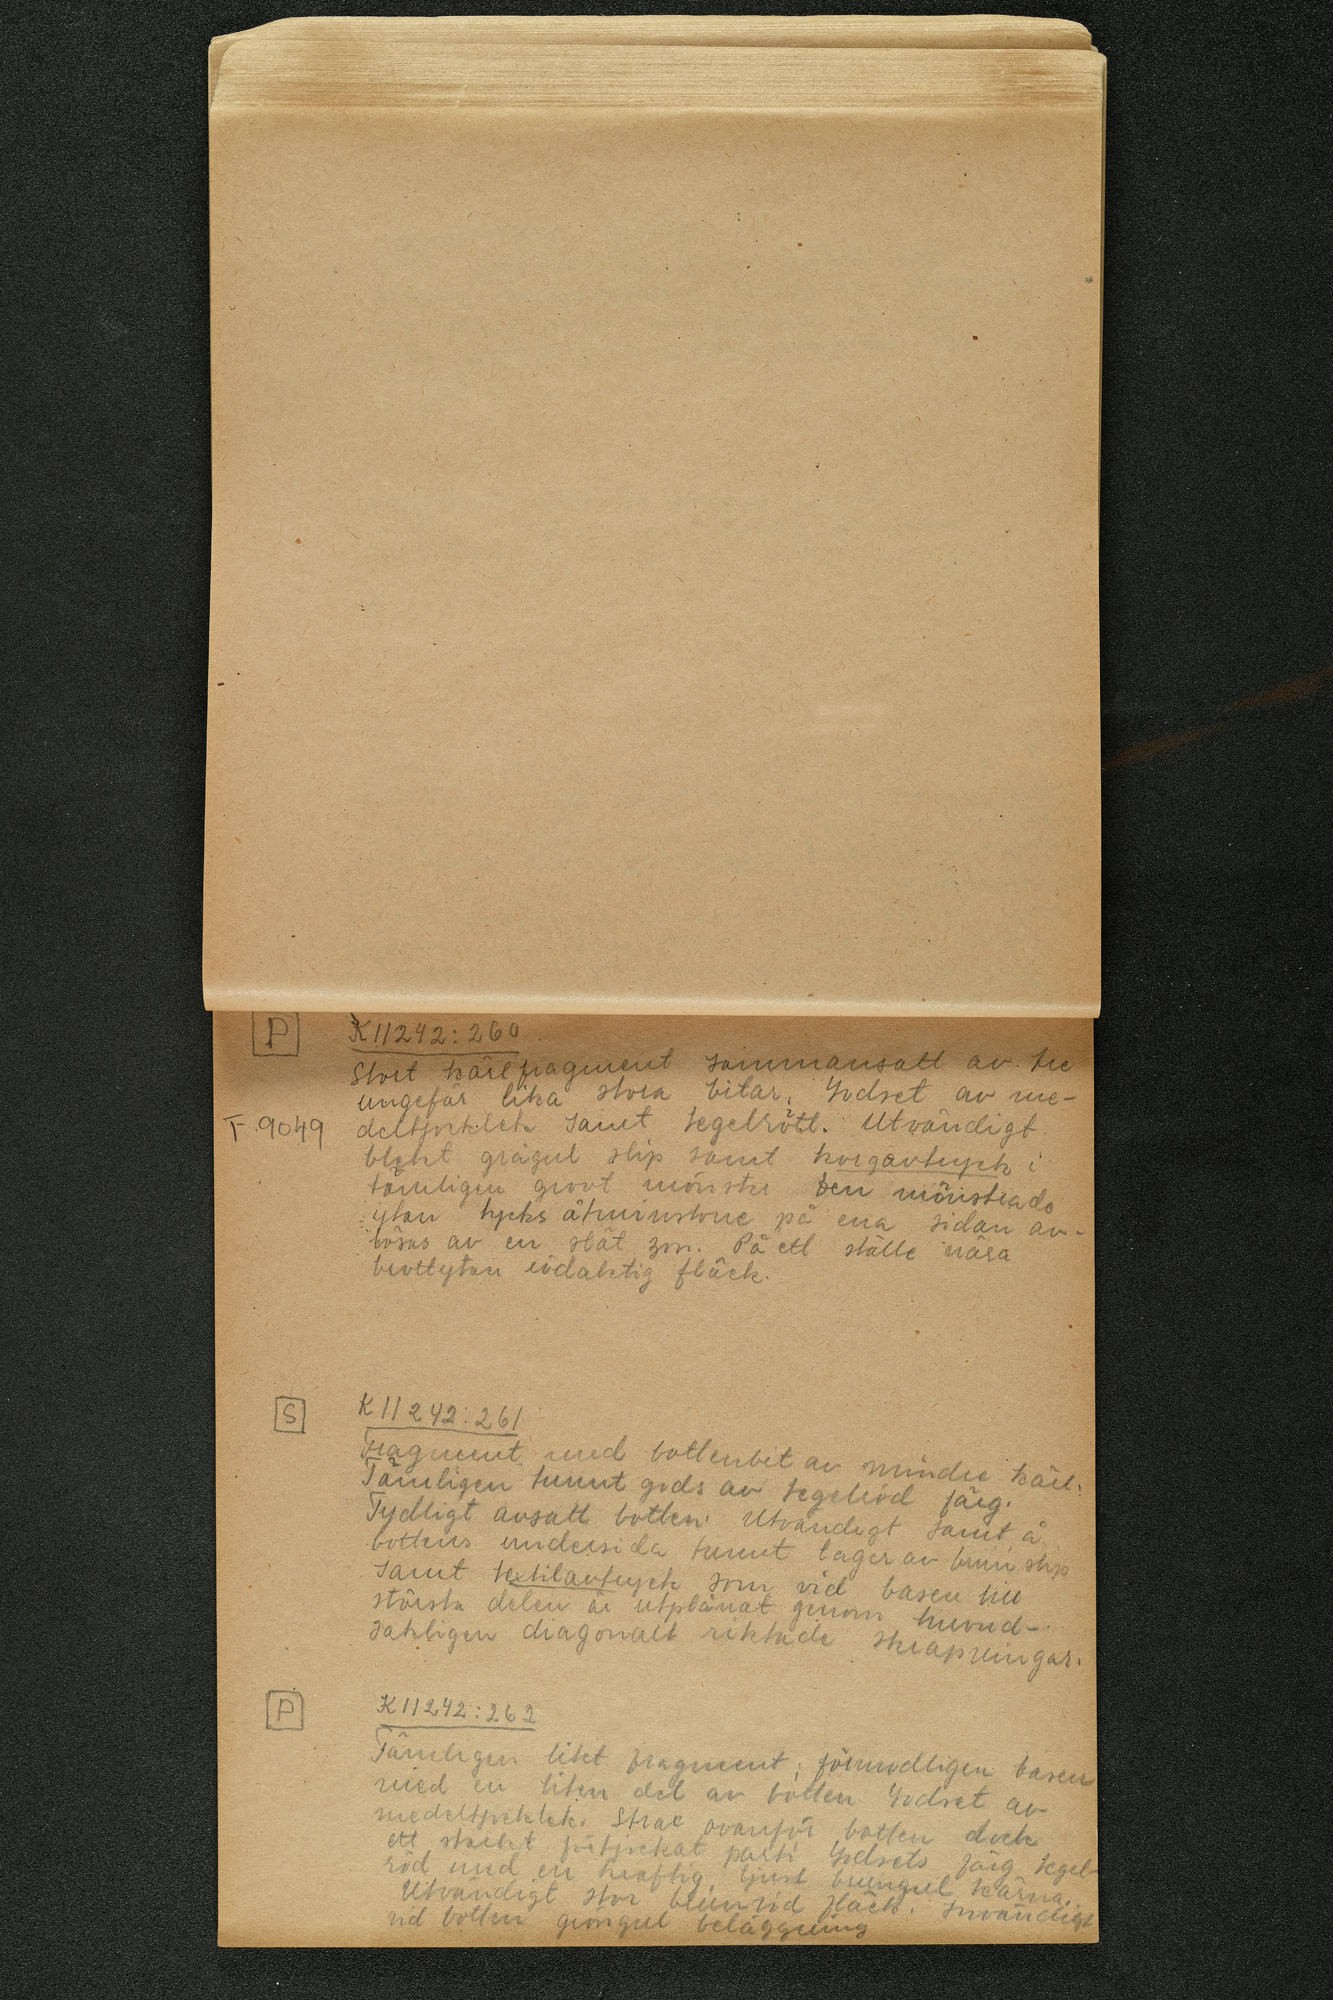 P K11242:260
Stort kärlfragment sammansatt av tre
ungefär lika stora bitar. Godset av me-
T. 9049 deltjocklek samt tegelrött. Utvändigt
blekt grågul slip samt korgavtryck i
tämligen grovt mönster Den mönstrade
ytan tycks åtminstone på ena sidan av-
lösas av en slät zon. På ett ställe nära
brottytan rödaktig fläck.
S K11242:261
Fragment med bottenbit av mindre kärl.
Tämligen tunnt gods av tegelröd färg.
Tydligt avsatt botten. Utvändigt samt å
bottens undersida tunnt lager av brun slip
samt textilavtryck som vid basen till
största delen är utplånat genom huvud-
sakligen diagonalt riktade skrapningar.
P K11242:262
Tämligen litet fragment, förmodligen basen
med en liten del av botten Godset av
medeltjocklek. Strax ovanför botten dock
ett starkt förtjockat parti Godsets färg tegel-
röd med en kraftig, ljust brungul kärna.
Utvändigt stor brunröd fläck. Invändigt
vid botten gröngul beläggning